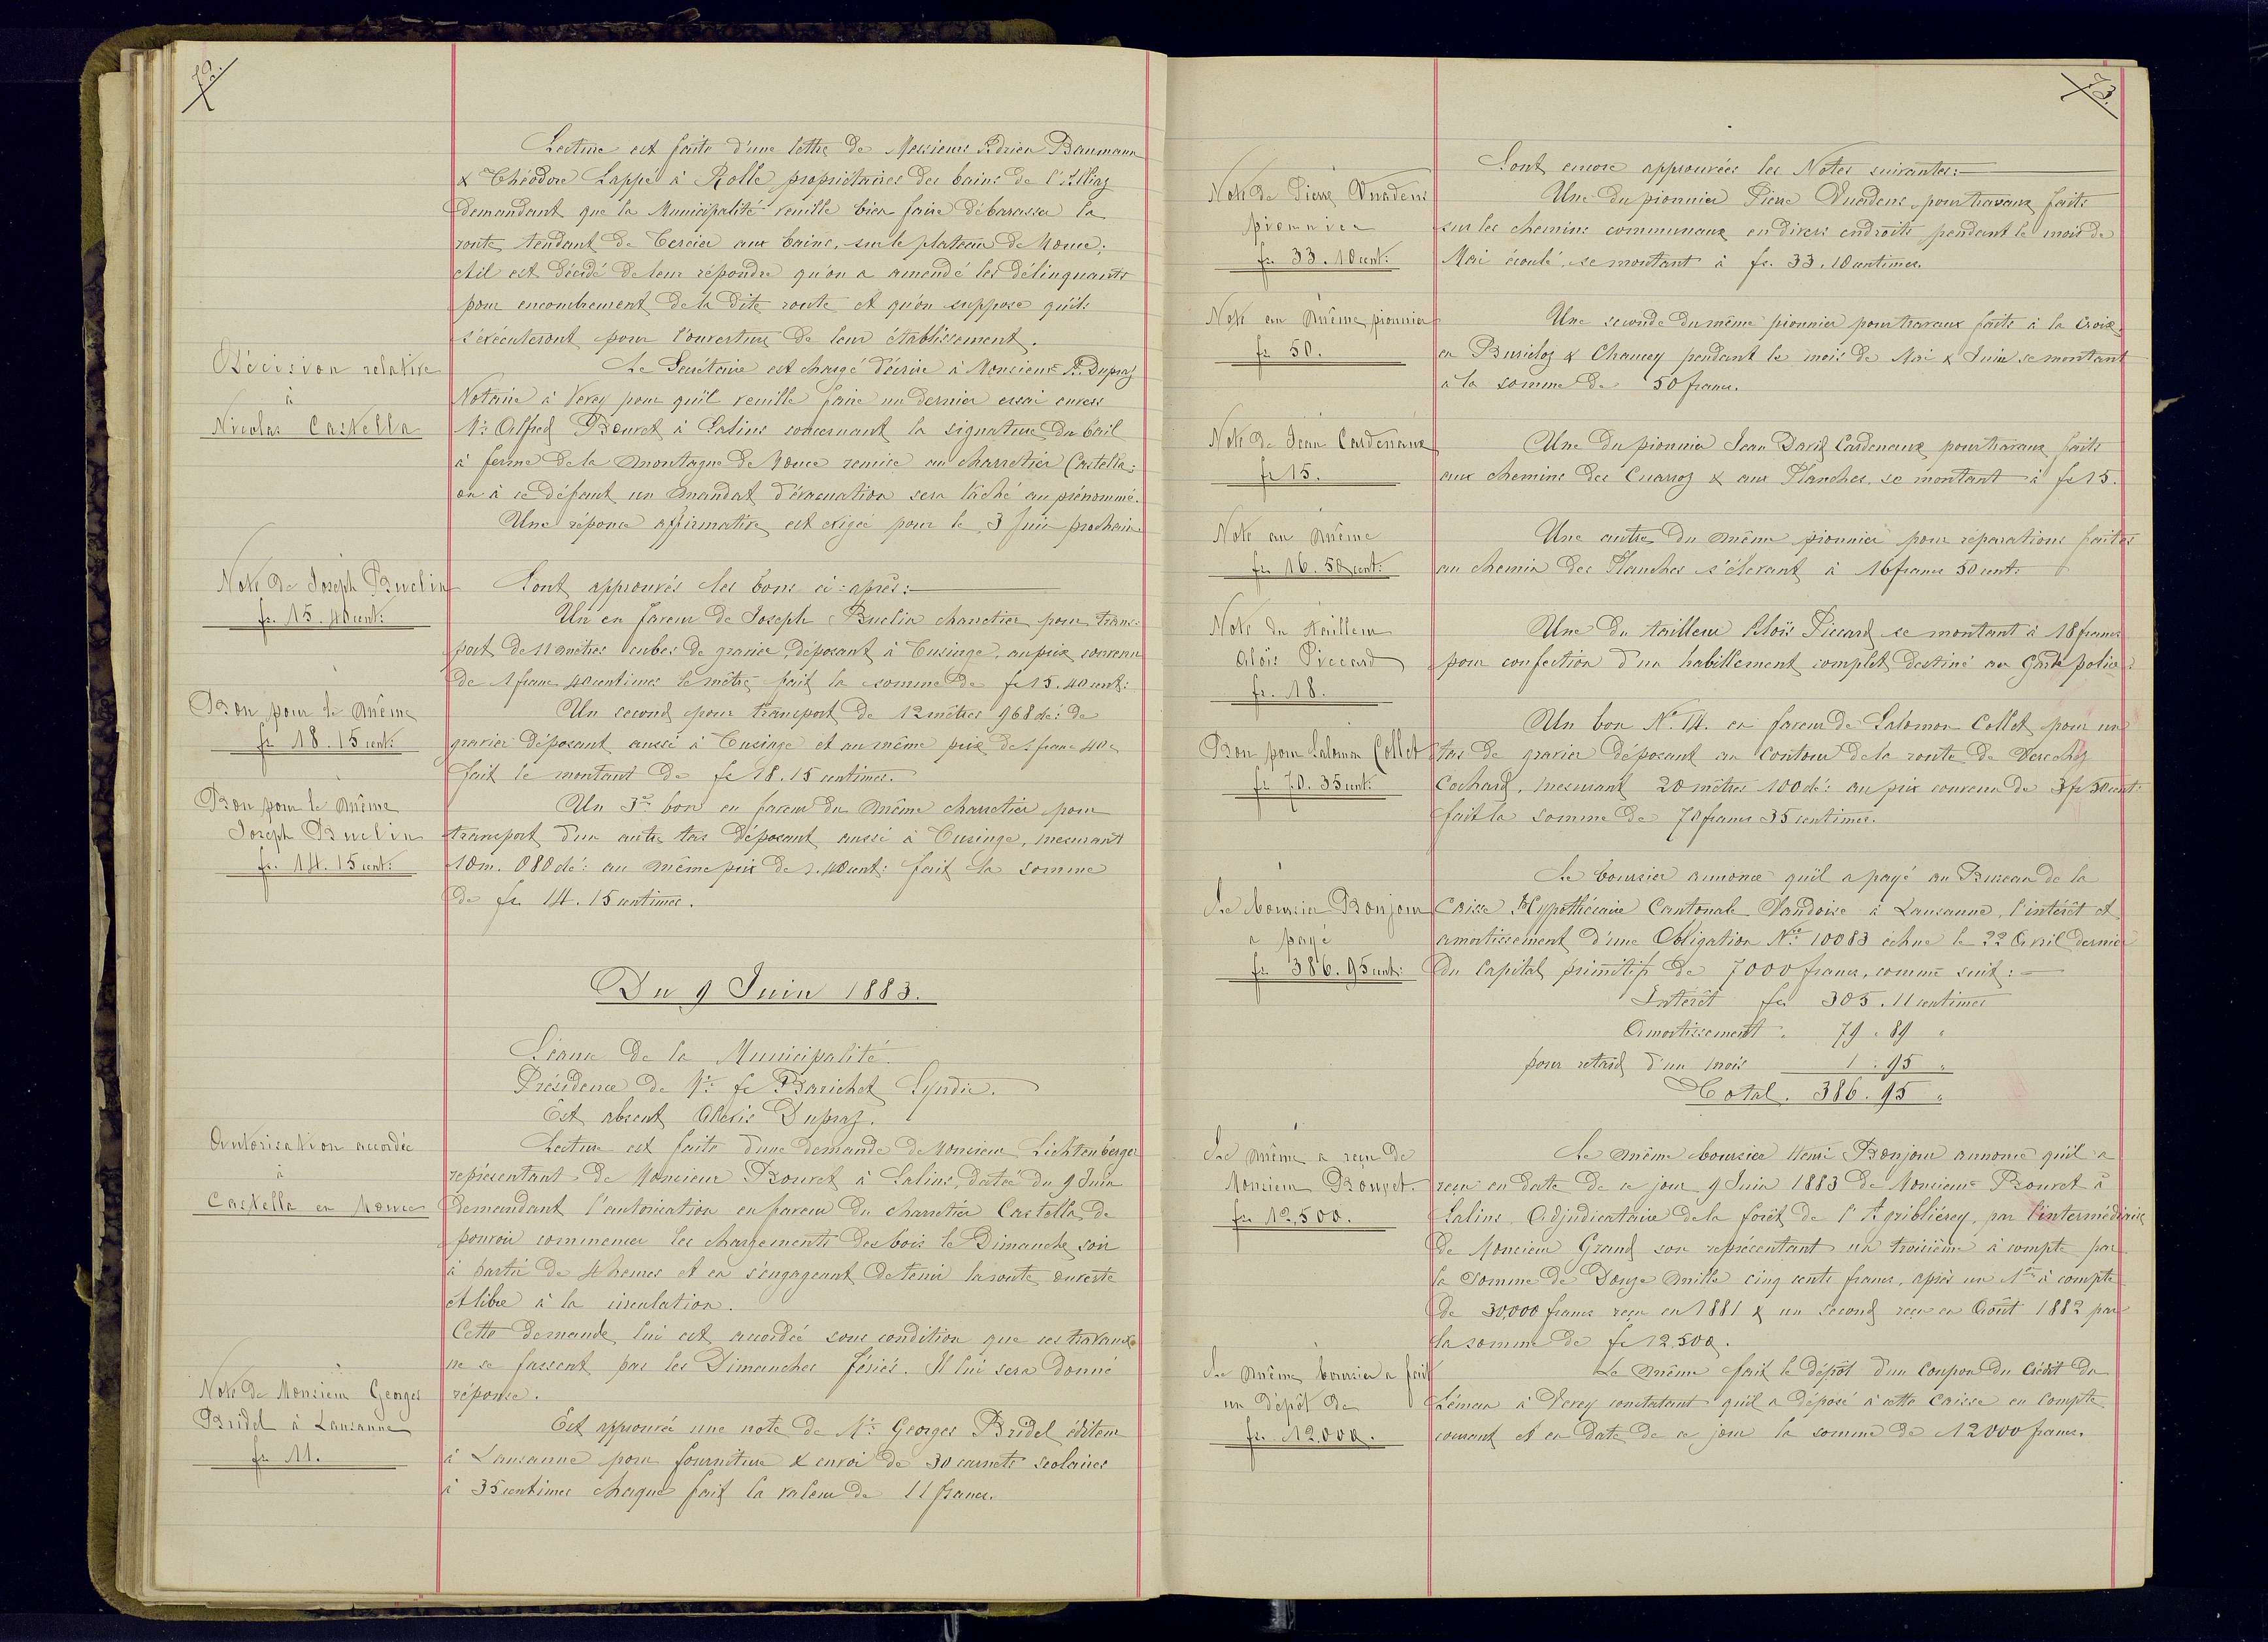 72.
Lecture est faite d'une lettre de Messieurs Adrien Baumann
& Théodore Lappé à Rolle propriétaires des bains de l'Alliaz
demandant que la Municipalité veuille bien faire débarasser la
route tendant de Cercier aux bains, sur le plateau de Mouce;
et il est décidé de leur répondre qu'on a amendé les délinquants
pour encombrement de la dite route et qu'on suppose qu'ils
s'exécuteront pour l'ouverture de leur établissement.
Décision relative
à
Nicolas Castella
Le Secrétaire est chargé d'écrire à Monsieur Dupraz
Notaire à Vevey pour qu'il veuille faire un dernier essai envers
Mr. Alfred Bouvet à Salins concernant la signature du bail
à ferme de la montagne de Mouce remise au charretier Castella;
ou à ce défaut un mandat d'évacuation sera lâché au prénommé.
Une réponse affirmative est exigée pour le 3 Juin prochain.
Note de Joseph Buclin
fr. 15.40 cent:
Sont approuvés les bons ci-après:
Un en faveur de Joseph Buclin charretier pour trans-
port de 11 mètres cubes de gravier, déposant à Cusinge, au prix convenu
de 1 franc 40 centimes le mètre fait la somme de fr 15.40 cent:
Bon pour le même
fr 18.15 cent:
Un second pour transport de 12 mètres 968 dé: de
gravier déposant aussi à Cusinge et au même prix de 1 franc 40 c
fait le montant de fr 18.15 centimes.
Bon pour le même
Joseph Buclin
fr. 14.15 cent:
Un 3e bon en faveur du même charretier pour
transport d'un autre tas déposant aussi à Cusinge, mesurant
10 m. 080 dé: au même prix de 1.40 cent: fait la somme
de fr. 14.15 centimes.
Du 9 Juin 1883.
Séance de la Municipalité.
Présidence de Mr. fs Barichet Syndic.
Est absent Alexis Dupraz.
Autorisation accordée
à
Castella en Mouce
Lecture est faite d'une demande de Monsieur Lichtenberger
représentant de Monsieur Bouvet à Salins, datée du 9 Juin
demandant l'autorisation en faveur du charretier Castella de
pouvoir commencer les chargements des bois le Dimanche soir
à partir de 4 heures et en s'engageant de tenir la route ouverte
et libre à la circulation.
Cette demande lui est accordée sous condition que ces travaux
ne se fassent pas les Dimanches fériés. Il lui sera donné
réponse.
Note de Monsieur Georges
Bridel à Lausanne
fr 11.
Est approuvée une note de Mr. Georges Bridel éditeur
à Lausanne pour fourniture & envoi de 30 carnets scolaires
à 35 centimes chaque fait la valeur de 11 francs.
73.
Sont encore approuvées les Notes suivantes:
Note de Pierre Vuadens
pionnier
fr. 33.10 cent:
Une du pionnier Pierre Vuadens pour travaux faits
sur les chemins communaux en divers endroits pendant le mois de
Mai écoulé, se montant à fr. 33.10 centimes.
Note au même pionnier
fr 50.
Une seconde du même pionnier pour travaux faits à la Croix,
en Buricloz & Chaucey pendant le mois de Mai & Juin se montant
à la somme de 50 francs.
Note de Jean Cardenaux
fr 15.
Une du pionnier Jean David Cardenaux pour travaux faits
aux chemins des Cuarroz & aux Planches, se montant à fr 15.
Note au même
fr. 16.50 cent:
Une autre du même pionnier pour réparations faites
au chemin des Planches s'élevant à 16 francs 50 cent:
Note du tailleur
Aloïs Piccard
fr. 18.
Une du tailleur Aloïs Piccard se montant à 18 francs
pour confection d'un habillement complet destiné au garde police.
Bon pour Salomon Collet
fr 70.35 cent:
Un bon No. 14. en faveur de Salomon Collet pour un
tas de gravier déposant au Contour de la route de Vercchy
Cochard, mesurant 20 mètres 100 dé: au prix convenu de 3 fr 50 cent:
fait la somme de 70 francs 35 centimes.
Le boursier Bonjour
a payé
fr. 386.95 cent:
Le boursier annonce qu'il a payé au Bureau de la
Caisse Hypothécaire Cantonale Vaudoise à Lausanne, l'intérêt et
amortissement d'une Obligation No. 10083 échue le 22 Avril dernier
du Capital primitif de 7000 francs, comme suit:
Intérêt fr 305.11 centimes
Amortissement " 79.89 "
pour retard d'un mois 1.95 "
Total. 386.95 "
Le même a reçu de
Monsieur Bouvet.
fr 12,500.
Le même boursier Henri Bonjour annonce qu'il a
reçu en date de ce jour 9 Juin 1883 de Monsieur Bouvet à
Salins Adjudicataire de la forêt de l'Agribliérey, par l'intermédiaire
de Monsieur Grand son représentant un troisième à compte par
la Somme de Douze mille cinq cents francs, après un 1er à compte
de 30,000 francs reçu en 1881 & un Second reçu en Août 1882 par
la somme de fr 12,500.
Le même boursier a fait
un dépôt de
fr. 12,000.
Le même fait le dépôt d'un Coupon du Crédit du
Léman à Vevey constatant qu'il a déposé à cette Caisse en Compte
courant et en date de ce jour la somme de 12000 francs.